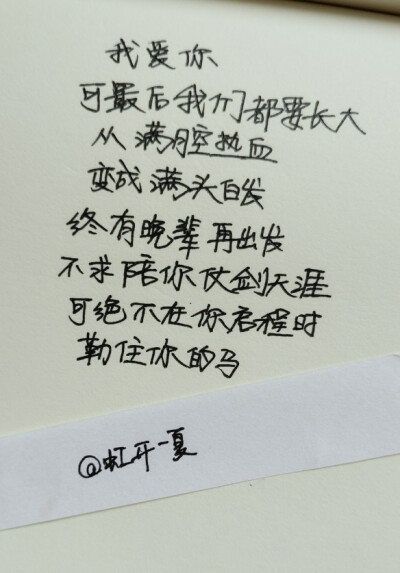 我爱你
可最后我们都要长大
从满腔热血
变成满头白发
终有晚辈再出发
不求陪你仗剑天涯
可绝不在你启程时
勒住你的马
@虹牙一夏